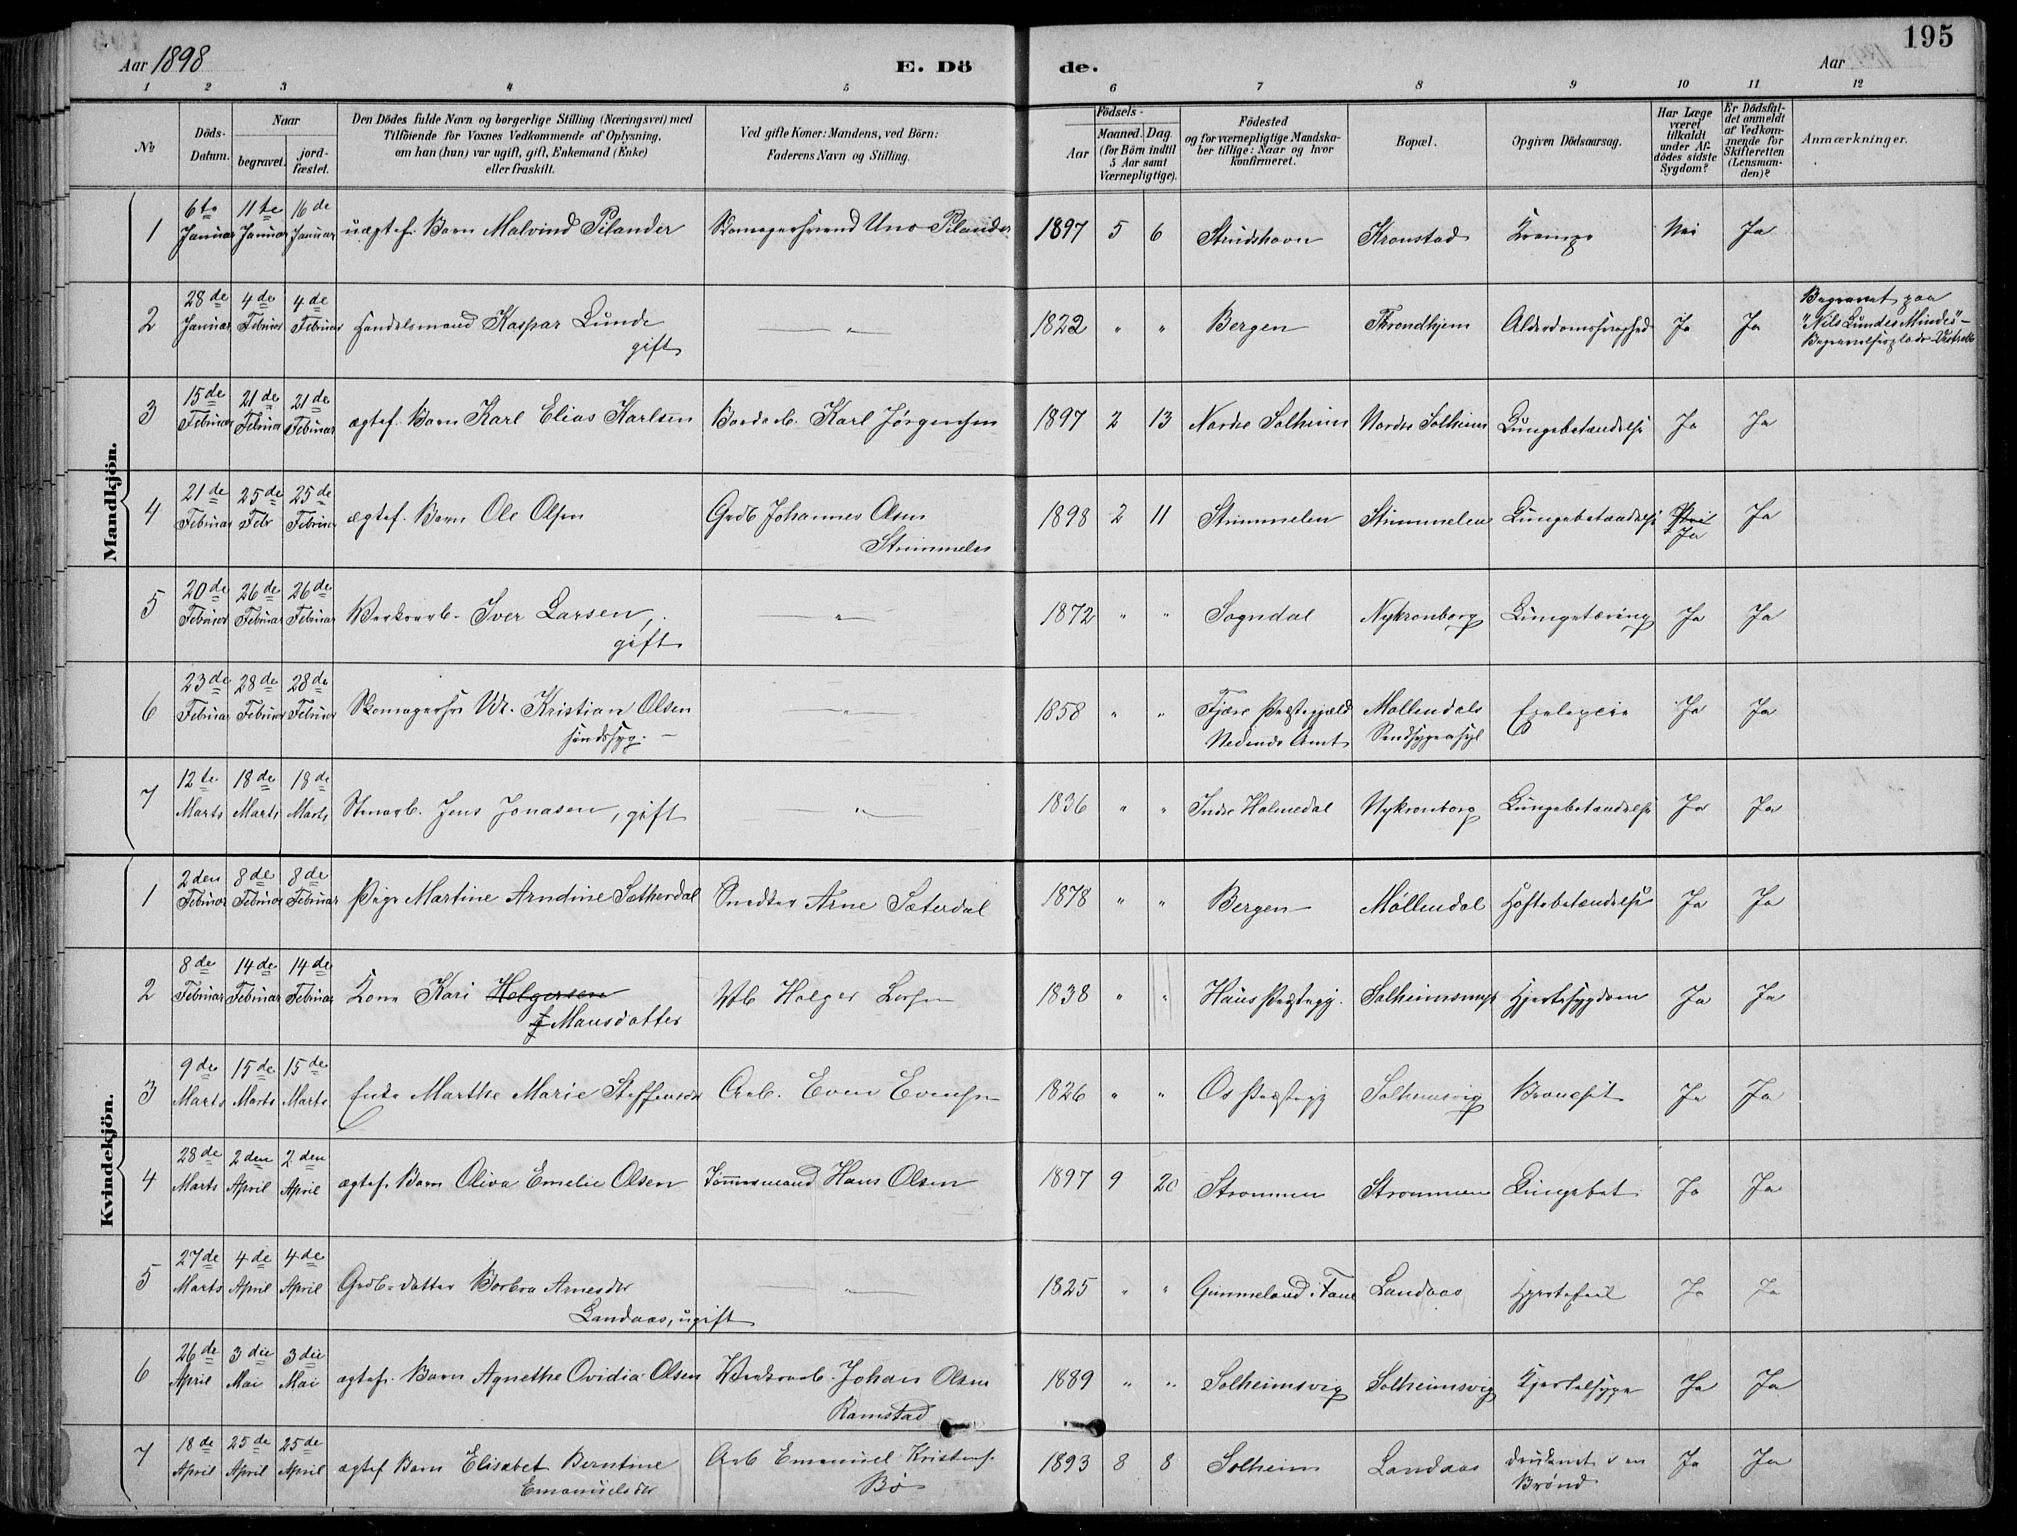 195
Aar 1898
E. Döde.
Aar
1 2 3 4 5 6 7 8 9 10 11 12
№
Döds-Datum.
Naar
begravet.
jord-fæstet.
Den Dödes fulde Navn og borgerlige Stilling (Næringsvei) med
Tilföiende for Voxnes Vedkommende af Oplysning,
om han (hun) var ugift, gift, Enkemand (Enke)
eller fraskilt.
Ved gifte Koner: Mandens, ved Börn:
Faderens Navn og Stilling.
Födsels-
Aar
Maaned. Dag
(for Börn indtil
5 Aar samt
Værnepligtige).
Födested
og for værnepligtige Mandska-
ber tillige: Naar og hvor
konfirmeret.
Bopæl.
Opgiven Dödsaarsag.
Har Læge
været
tilkaldt
under Af-
dödes sidste
Sygdom?
Er Dödsfal-
det anmeldt
af Vedkom-
mende for
Skifteretten
(Lensman-
den)?
Anmærkninger.
Mandkjön.
1 6te Januar 11te Januar 16de Januar uægtef. Barn Malvind Pilander Skomagersvend Uno Pilander 1897 5 6 Kronstad Krampe Nei Ja
2 28de Januar 4de Februar 4de Februar Handelsmand Kaspar Lunde gift " 1822 " " Bergen Throndhjem Alderdomssvaghed Ja Ja Begravet paa "Nils Lundes Minde"- Begravelsesplads
3 15de Februar 21de Februar 21de Februar ægtef. Barn Karl Elias Karlsen Karl Jørgensen 1897 2 13 Nordre Solheim Nordre Solheim Lungebetændelse Ja Ja
4 21de Februar 25de Febr 25de Februar ægtef. Barn Ole Olsen Grdb Johannes Olsen Strimmelen 1898 2 11 Strimmelen Strimmelen Lungebetændelse Ja Ja
5 20de Februar 26de Februar 26de Februar Værksarb. Iver Larsen, gift " 1872 " " Sogndal Nykronborg Lungetæring Ja Ja
6 23de Februar 28de Februar 28de Februar Kristian Olsen sindssyg. " 1858 " " Fjære Præstegjæld Nedenes Amt Møllendals Sindsygeasyl Epilepsie Ja Ja
7 12te Marts 18de Marts 18de Marts Stenarb. Jens Jonasen, gift " 1836 " " Indre Holmedal Nykronborg Lungebetændelse Ja Ja
Kvindekjön.
1 2den Februar 8de Februar 8de Februar Pige Martine Arndine Sætherdal Arne Sæterdal 1878 " " Bergen Møllendal Hoftebetændelse Ja Ja
2 8de Februar 14de Februar 14de Februar Kone Kari Helgersen f Mansdatter Holger Larsen 1838 " " Haus Præstegj. Solheimsvig Hjertesygdom Ja Ja
3 9de Marts 15de Marts 15de Marts Enke Marthe Marie Steffensdr Arb. Even Evensen 1826 " " Os Præstegj Solheimsvig Ja Ja
4 28de Marts 2den April 2den April ægtef. Barn Oliva Emelie Olsen Tømmermand Hans Olsen 1897 9 20 Strømmen Strømmen Lungebet. Ja Ja
5 27de Marts 4de April 4de April Grdb-datter Barbra Arnesdr Landaas, ugift " 1825 " " Gimmeland i Fane Landaas Hjertefeil Ja Ja
6 26de April 3die Mai 3die Mai ægtef. Barn Agnethe Ovidia Olsen Værksarb. Johan Olsen Ramstad 1889 " " Solheimsvig Solheimsvig Kjertelsyge Ja Ja
7 18de April 25de April 25de April ægtef Barn Elisabet Berntine Emanuelsdr Arb Emanuel Kristens. Bø 1893 8 8 Solheim Landaas druknet i en Brønd Ja Ja